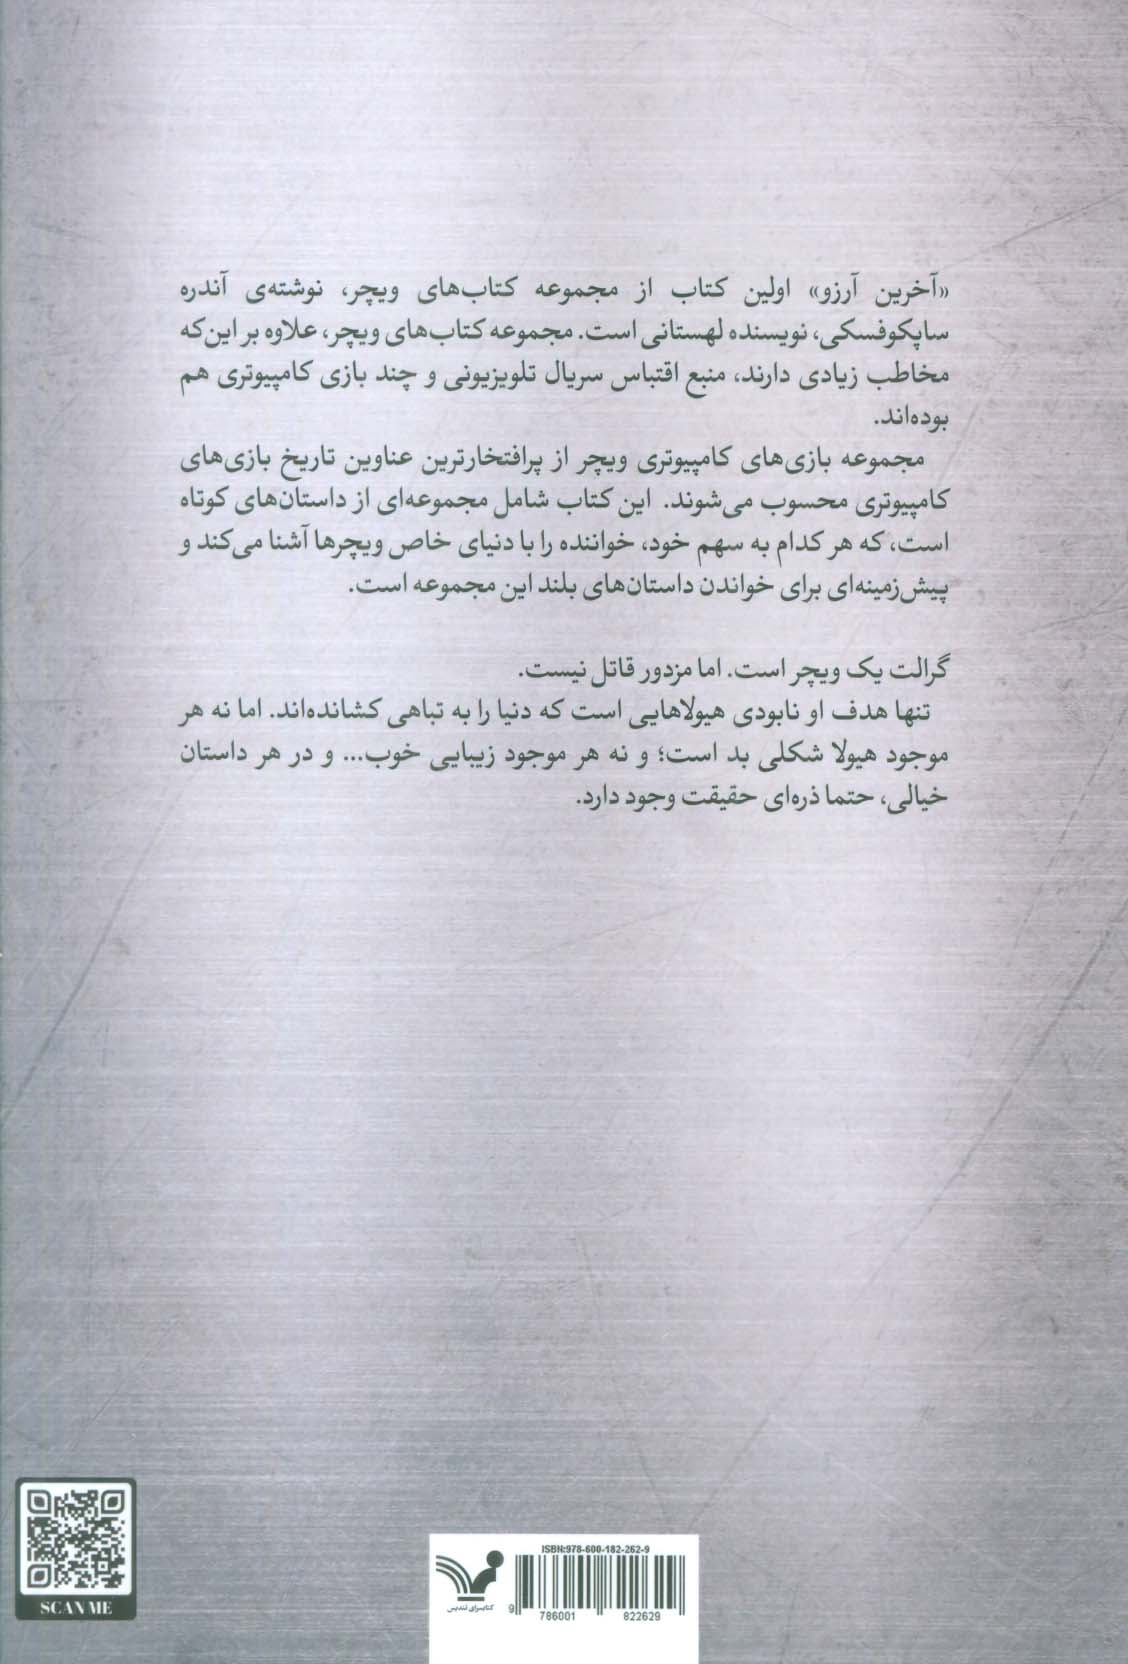 «آخرین آرزو» اولین کتاب از مجموعه کتاب‌های ویچر، نوشته‌ی آندره
ساپکوفسکی، نویسنده لهستانی است. مجموعه کتاب‌های ویچر، علاوه بر این‌که
مخاطب زیادی دارند، منبع اقتباس سریال تلویزیونی و چند بازی کامپیوتری هم
بوده‌اند.
مجموعه بازی‌های کامپیوتری ویچر از پرافتخارترین عناوین تاریخ بازی‌های
کامپیوتری محسوب می‌شوند. این کتاب شامل مجموعه‌ای از داستان‌های کوتاه
است، که هر کدام به سهم خود، خواننده را با دنیای خاص ویچرها آشنا می‌کند و
پیش‌زمینه‌ای برای خواندن داستان‌های بلند این مجموعه است.
گرالت یک ویچر است. اما مزدور قاتل نیست.
تنها هدف او نابودی هیولاهایی است که دنیا را به تباهی کشانده‌اند. اما نه هر
موجود هیولا شکلی بد است؛ و نه هر موجود زیبایی خوب... و در هر داستان
خیالی، حتما ذره‌ای حقیقت وجود دارد.
SCAN ME
کتابسرای تندیس
ISBN:978-600-182-262-9
9 786001 822629